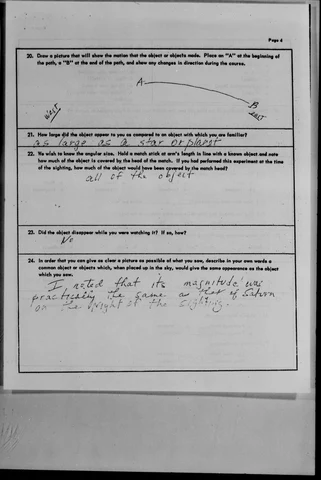 Page 6
20. Draw a picture that will show the motion that the object or objects made. Place an "A" at the beginning of
the path, a "B" at the end of the path, and show any changes in direction during the course.
A
B
West
East
21. How large did the object appear to you as compared to an object with which you are familiar?
as large as a star or planet
22. We wish to know the angular size. Hold a match stick at arm's length in line with a known object and note
how much of the object is covered by the head of the match. If you had performed this experiment at the time
of the sighting, how much of the object would have been covered by the match head?
all of the object
23. Did the object disappear while you were watching it? If so, how?
No
24. In order that you can give as clear a picture as possible of what you saw, describe in your own words a
common object or objects which, when placed up in the sky, would give the same appearance as the object
which you saw.
I noted that its magnitude was
practically the same as that of Saturn
on the night of the sighting.